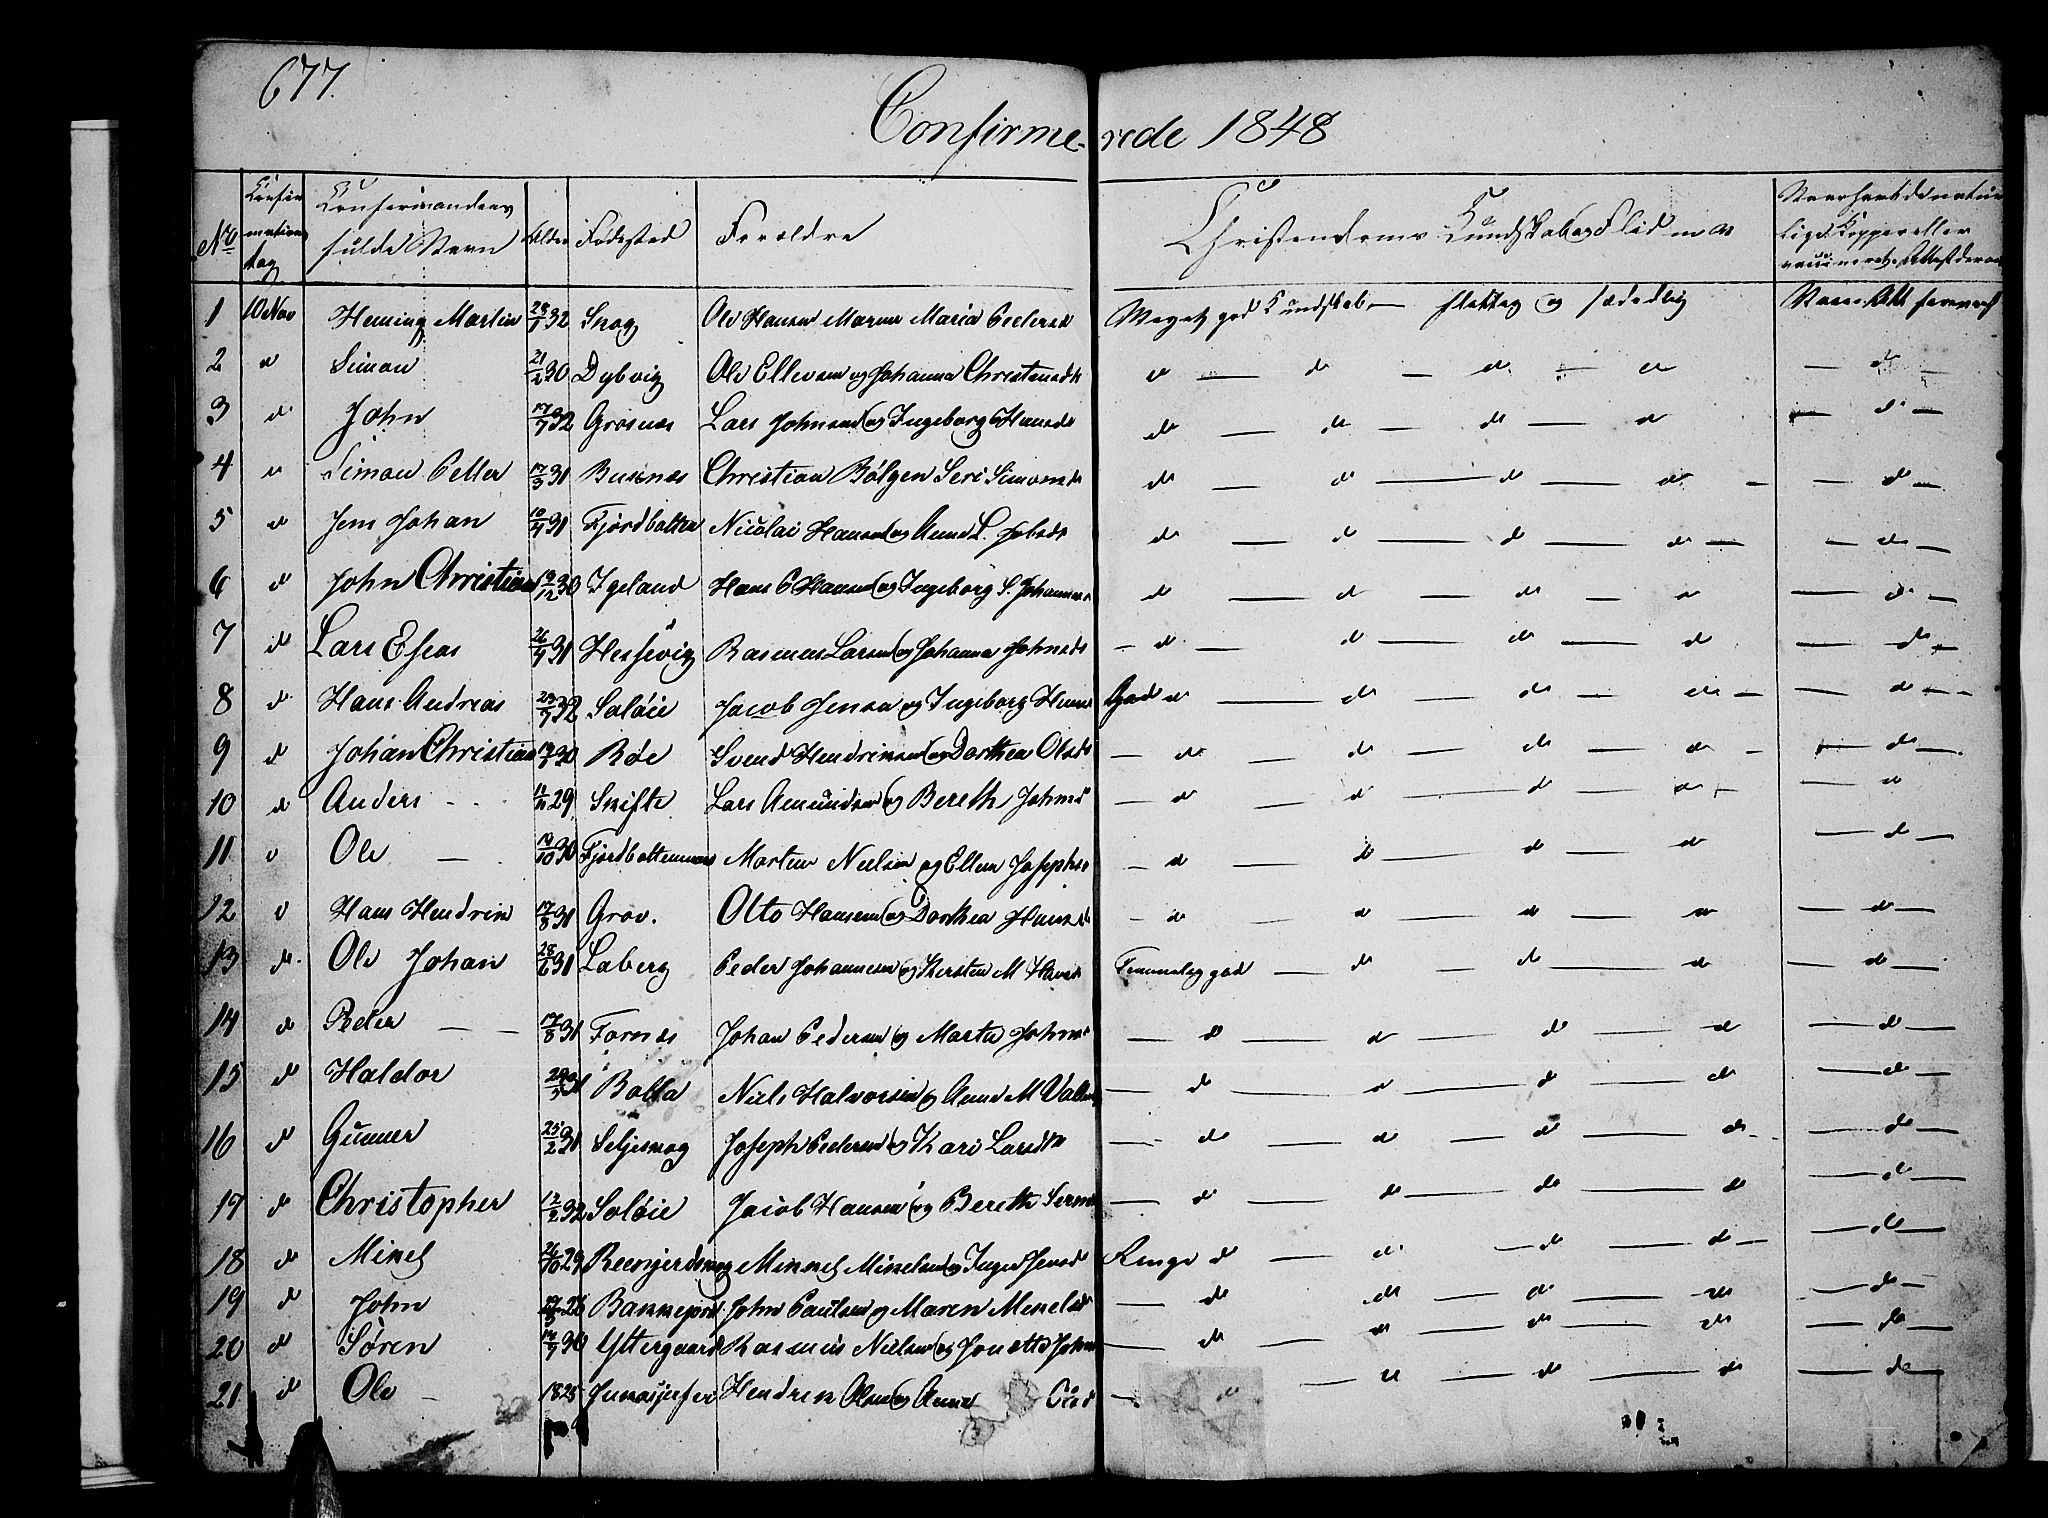 677.
Confirme- rede 1848
No Confir mations dag Confirmandens fulde Navn Alder Fødested Forældre Christendoms Kundskaber Flid
1 10 Nov Heming Martin 32 Skog Ole Hansen Maren Maria Peders Meget god Kundskab - flittig og sædelig
2 d Simon 21/2 30 Dybvig Ole Ellevsen og Johanna Christensdr d — d — d — d — d —
3 d John 17/7 32 Grosnæs Lars Johnsen og Ingeborg Hansdr d — d — d — d — d —
4 d Simon Petter 17/3 31 Busnæs Christian Bølgen Seri Simonsdr d — d — d — d — — d —
5 d Jens Johan 10/4 31 Fjordbotten Nicolai Hansen og Anne L. Jobsdr d — d — d — d — — d —
6 d John Christian 19/12 30 Igeland Hans P Hansen og Ingeborg S. Johannes d — d — d — d — d —
7 d Lars Eseas 26/9 31 Hessevig Rasmus Larsen og Johanna Johnsdr — d — d — d — d — d —
8 d Hans Andreas 32 Saløie Jacob Jensen og Ingeborg Hans God d — d — d — d — — d —
9 d Johan Christian 30 Røe Svend Hendriksen og Dorthea Olsdr — d — d — d — d — — d —
10 d Anders - - 29 Skifte Lars Amundsen og Bereth Johns — d — d — d — d — — d
11 d Ole — 30 Fjordbottennæs Morten Nielsen og Ellen Josephs — d — d — d — d — d —
12 d Hans Hendrik 17/8 31 Grov. Otto Hansen og Dorthea Hansdr — d — d — d — d — d —
13 d Ole Johan 28/6 31 Laberg Peder Johannesen og Kersten M Hans Temmelig god — d — d — d — d —
14 d Peder — — 17/8 31 Fornæs Johan Pedersen og Marta Johns — d — d — d — d — d —
15 d Haldor 31 Bolla Niels Halvorsen og Anne M — d — d — d — d — d —
16 d Gunner 25/2 31 Seljeskog Joseph Pedersen og Kari Larsdtr — d — d — d — d — d —
17 d Christopher 12/2 32 Saløie Jacob Hansen og Bereth — d — d — d — d — d —
18 d Mikel 26/10 29 Mikkel Mikelsen og Inger Jensd Ringe d — d — d — d — — d —
19 d John 28 John Paulsen og Maren Mikelsdr — d — d — d — d — d —
20 d Søren 30 Yttergaard Rasmus Nielsen og Jonetta Johns — d — d — d — d — d —
21 d Ole — 1825 Hendrik Olsen og Anne Olsd — d — d — d — d — d —